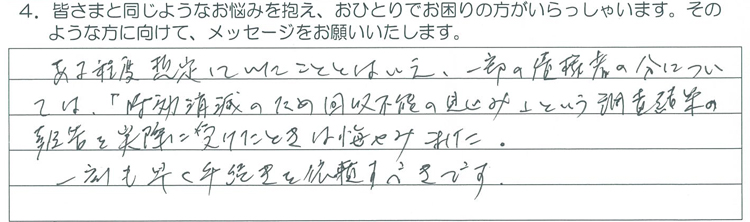 4. 皆さまと同じようなお悩みを抱え、おひとりでお困りの方がいらっしゃいます。その
ような方に向けて、メッセージをお願いいたします。
ある程度想定していたこととはいえ、一部の債権者の分につい
ては、「時効消滅のため回収不能の見込み」という調査結果の
報告を実際に受けたときは悔やみました。
一刻も早く手続きを依頼すべきです.